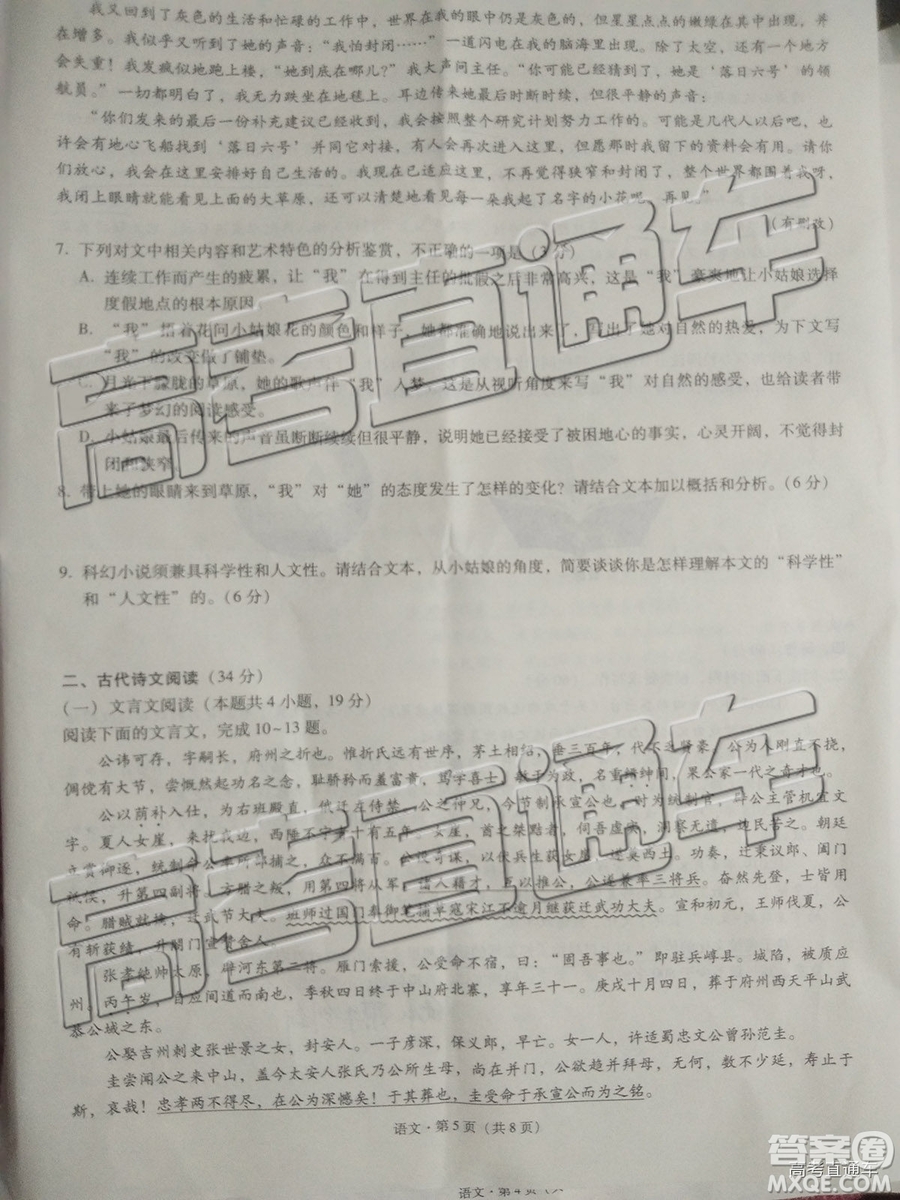 我又回到了灰色的生活和忙碌的工作中，世界在我的眼中仍是灰色的，但星星点点的嫩绿在其中出现，并
在增多。我似乎又听到了她的声音：“我怕封闭……”一道闪电在我的脑海里出现。除了太空，还有一个地方
会失重！我发疯似地跑上楼，“她到底在哪儿？”我大声问主任。“你可能已经猜到了，她是‘落日六号’的领
航员。”一切都明白了，我无力跌坐在地毯上。耳边传来她最后时断时续，但很平静的声音：
“你们发来的最后一份补充建议已经收到，我会按照整个研究计划努力工作的。可能是几代人以后吧，也
许会有地心飞船找到‘落日六号’并同它对接，有会再次进入这里，但愿那时我留下的资料会有用。请你
们放心，我会在这里安排好自己生活的。我现在已适应这里，不再觉得狭窄和封闭了，整个世界都围着我呀，
我闭上眼睛就能看见上面的大草原，还可以清楚地看见每一朵我起了名字的小花呢。再见。”
（有删改）
7. 下列对文中相关内容和艺术特色的分析鉴赏，不正确的一项是（3分）
A. 连续工作而产生的疲累，让“我”在得到主任的批假之后非常高兴，这是“我”豪爽地让小姑娘选择
度假地点的根本原因。
B. “我”指着花问小姑娘花的颜色和样子，她都准确地说出来了，写出了她对自然的热爱，为下文写
“我”的改变做了铺垫。
C. 月光下朦胧的草原，她的歌声伴“我”入梦，这是从视听角度来写“我”对自然的感受，也给读者带
来了梦幻的阅读感受。
D. 小姑娘最后传来的声音虽断断续续但很平静，说明她已经接受了被困地心的事实，心灵开阔，不觉得封
闭和狭窄。
8. 带上她的眼睛来到草原，“我”对“她”的态度发生了怎样的变化？请结合文本加以概括和分析。（6分）
9. 科幻小说须兼具科学性和人文性。请结合文本，从小姑娘的角度，简要谈谈你是怎样理解本文的“科学性”
和“人文性”的。（6分）
二、古代诗文阅读（34分）
（一）文言文阅读（本题共4小题，19分）
阅读下面的文言文，完成10-13题。
公讳可存，字嗣长，府州之折也。惟折氏远有世序，茅土相绍，垂三百年，代不乏贤豪，公为人刚直不挠，
倜傥有大节，尝慨然起功名之念，耻骄矜而羞富贵，笃学喜士，敏于为政，名重缙绅间，果公家一代之奇才也。
公以荫补入仕，为右班殿直，
夏人女崖，来扰我边，西陲不宁者十有五年。女崖，首之桀黠者，
功奏，迁秉义郎、阁门
祗侯，升第四副将。方腊之叛，用第四将从军，诸人藉才，互以推公，公遂兼率三将兵。奋然先登，士皆用
命。腊贼就擒，迁武节大夫。班师过国门奉御笔捕草寇宋江不逾月继获迁武功大夫。宣和初元，王师伐夏，公
有斩获绩，升阁门宣赞舍人。
张孝纯帅太原，辟河东第二将。雁门索援，公受命不宿，曰：“固吾事也。”即驻兵崞县。城陷，被质应
州。丙午岁，自应间道而南也，季秋四日终于中山府北寨，享年三十一。庚戌十月四日，葬于府州西天平山武
恭公域之东。
公娶吉州刺史张世景之女，封安人。一子彦深，保义郎，早亡。女一人，许适蜀忠文公曾孙范圭。
圭尝闻公之来中山，盖今太安人张氏乃公所生母，尚在并门，公欲趋并拜母，无何，数不少延，寿止于
斯，哀哉！忠孝两不得尽，在公为深憾矣！于其葬也，圭受命于承宣公而为之铭。
语文·第5页（共8页）
语文·第4页
高考直通车
高考直通车
答案圈
高考直通车
MXQE.COM